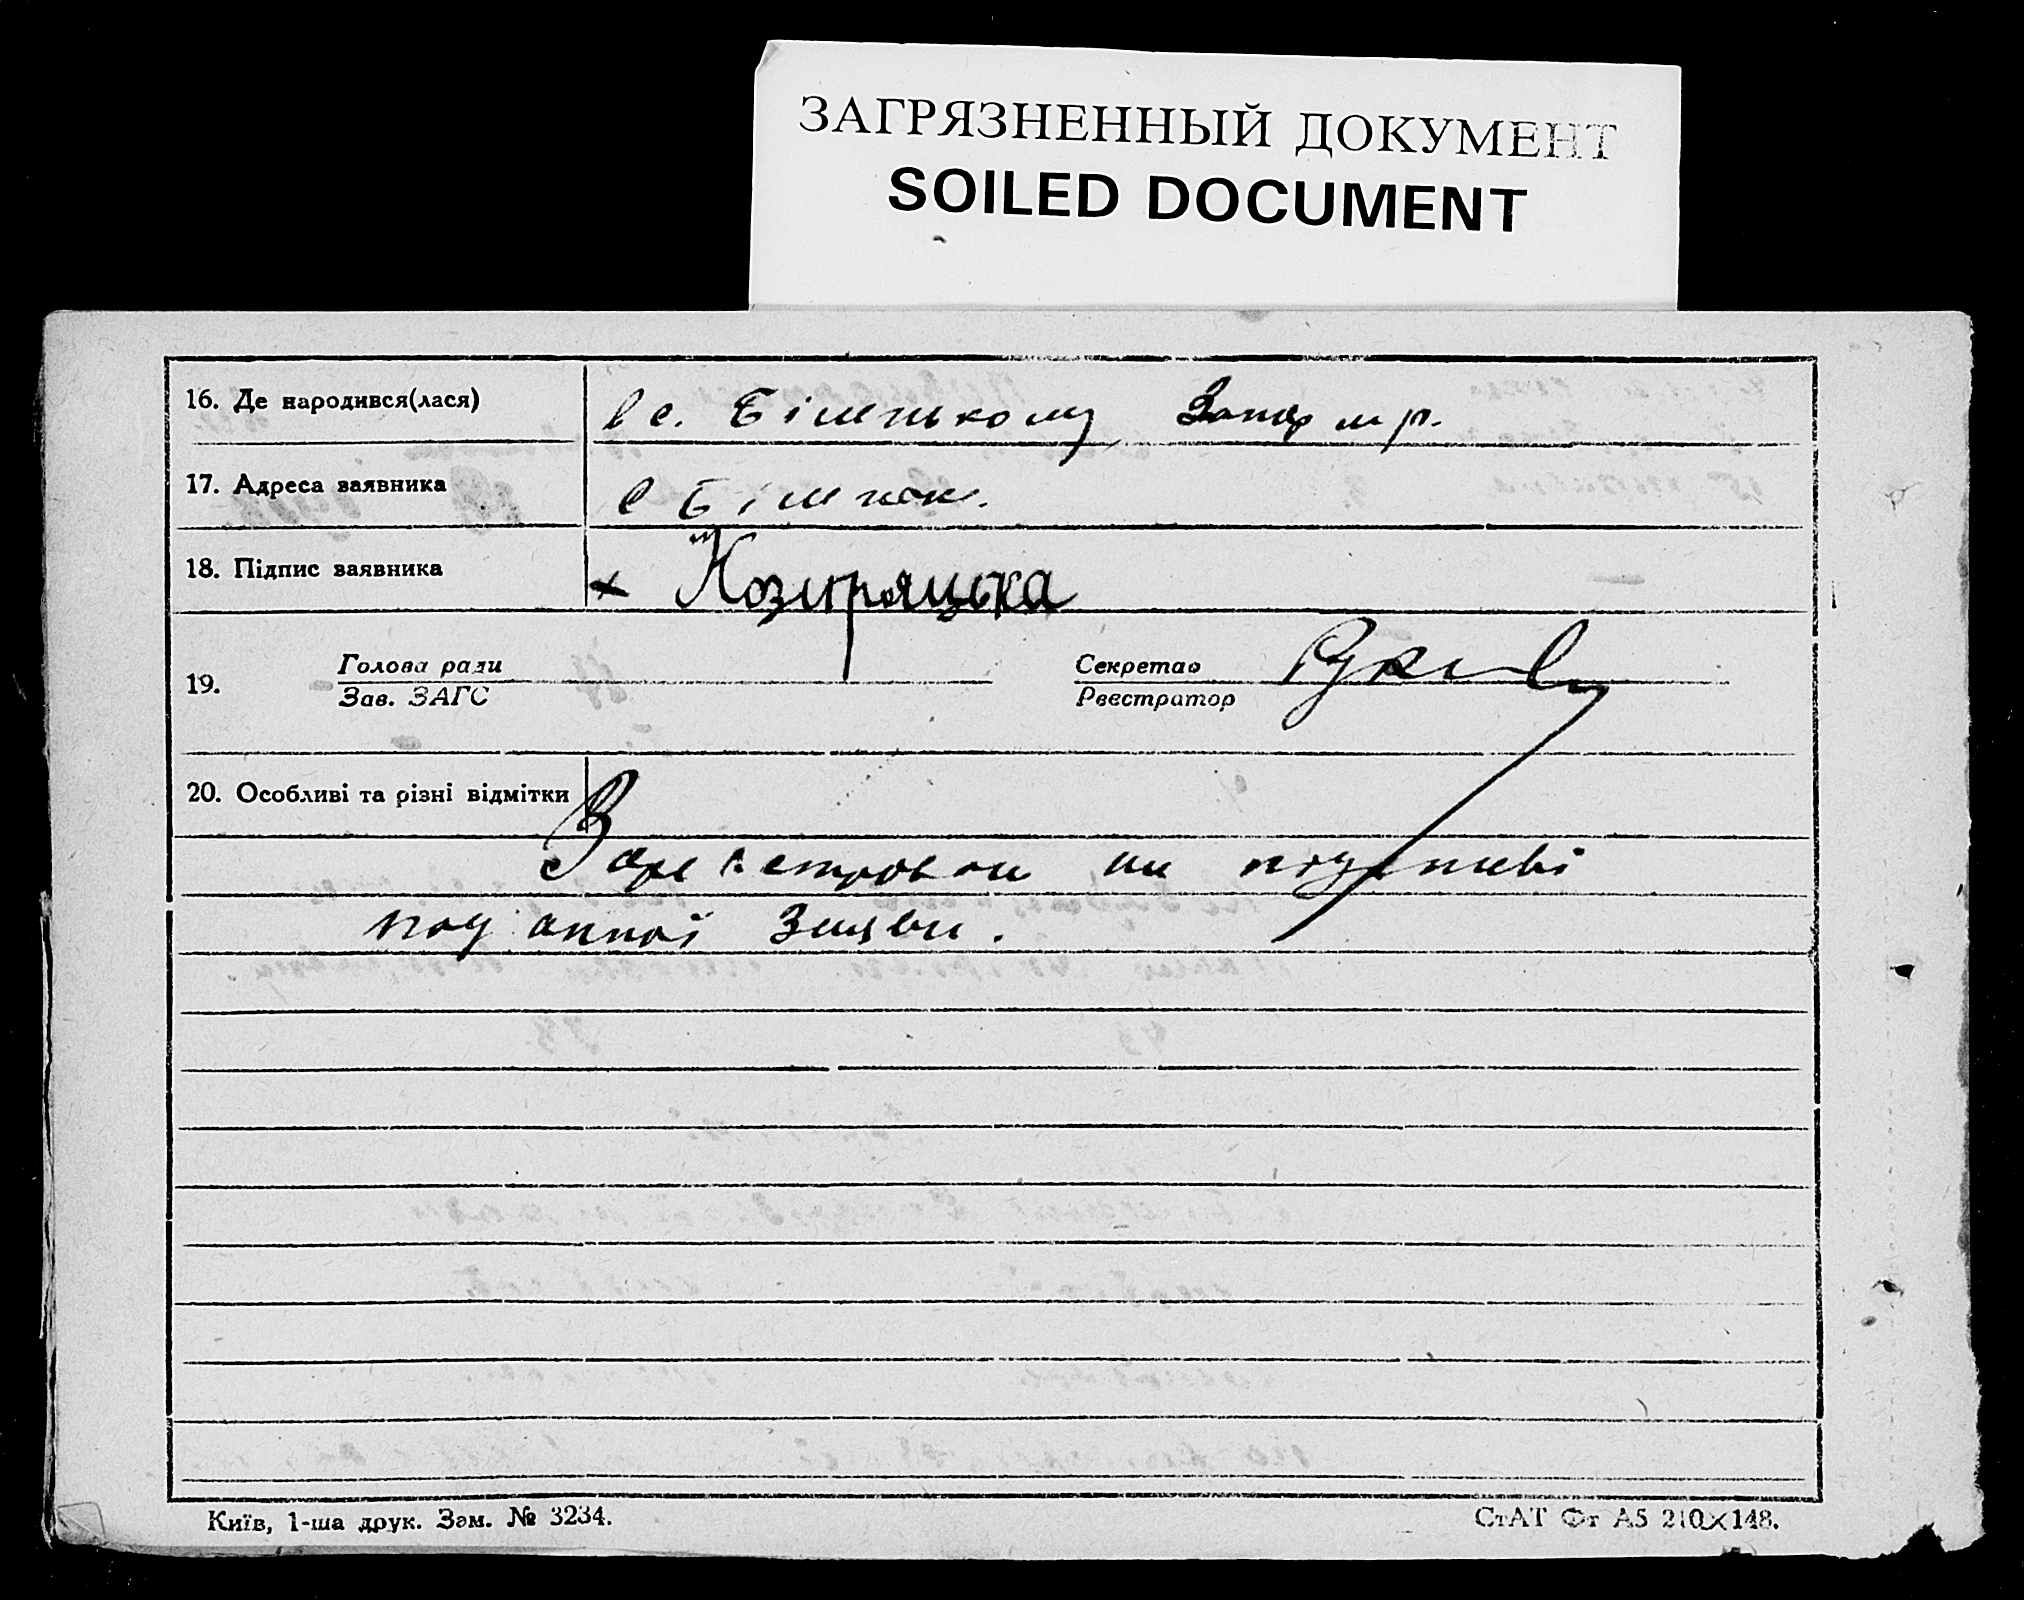 ЗАГРЯЗНЕННЫЙ ДОКУМЕНТ
SOILED DOCUMENT
16. Де народився(лася)
в с. Біленькому Запор р.
17. Адреса заявника
с Біленьк.
18. Підпис заявника
х Козиряцька
19.
Голова ради
Зав. ЗАГС
Секретар
Реєстратор
20. Особливі та різні відмітки
Зареєстрован на підставі
поданної Заяви.
Київ, 1-ша друк. Зам. № 3234.
СтАТ Фт А5 210×148.